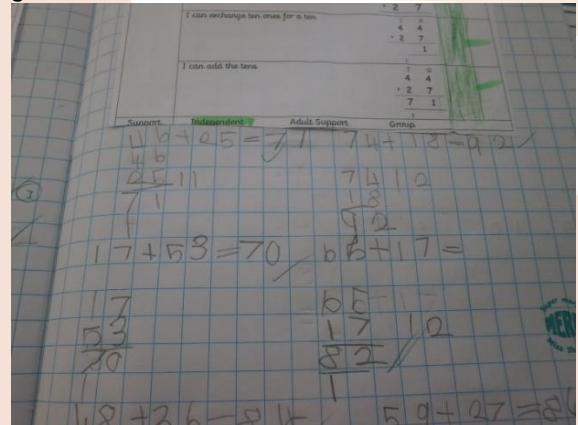 + 2 7
I can exchange ten ones for a ten
4 4
+ 2 7
1
I can add the tens
4 4
+ 2 7
7 1
1
Support Independent Adult Support Group
46+25=71 74+18=92
46
25 11
71
1
74 12
18
92
17+53=70 65+17=
17
53
70
1
65
17 12
82
1
48+36=84 59+27=86